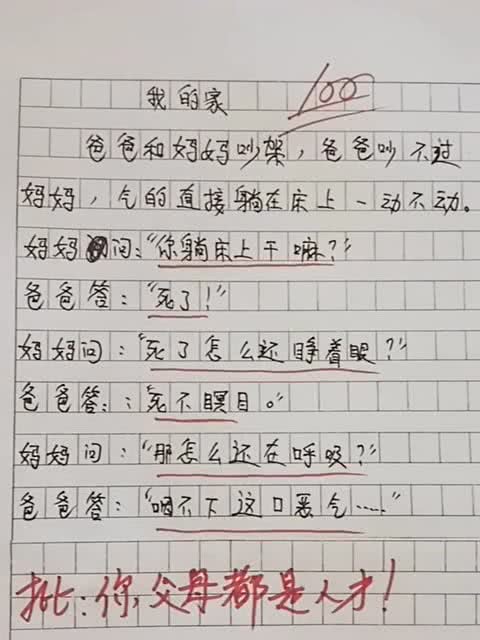 我的家
100
爸爸和妈妈吵架，爸爸吵不过
妈妈，气的直接躺在床上一动不动。
妈妈问："你躺床上干嘛？"
爸爸答："死了！"
妈妈问："死了怎么还睁着眼？"
爸爸答：："死不瞑目。"
妈妈问："那怎么还在呼吸？"
爸爸答："咽不下这口恶气……"
批：你父母都是人才！